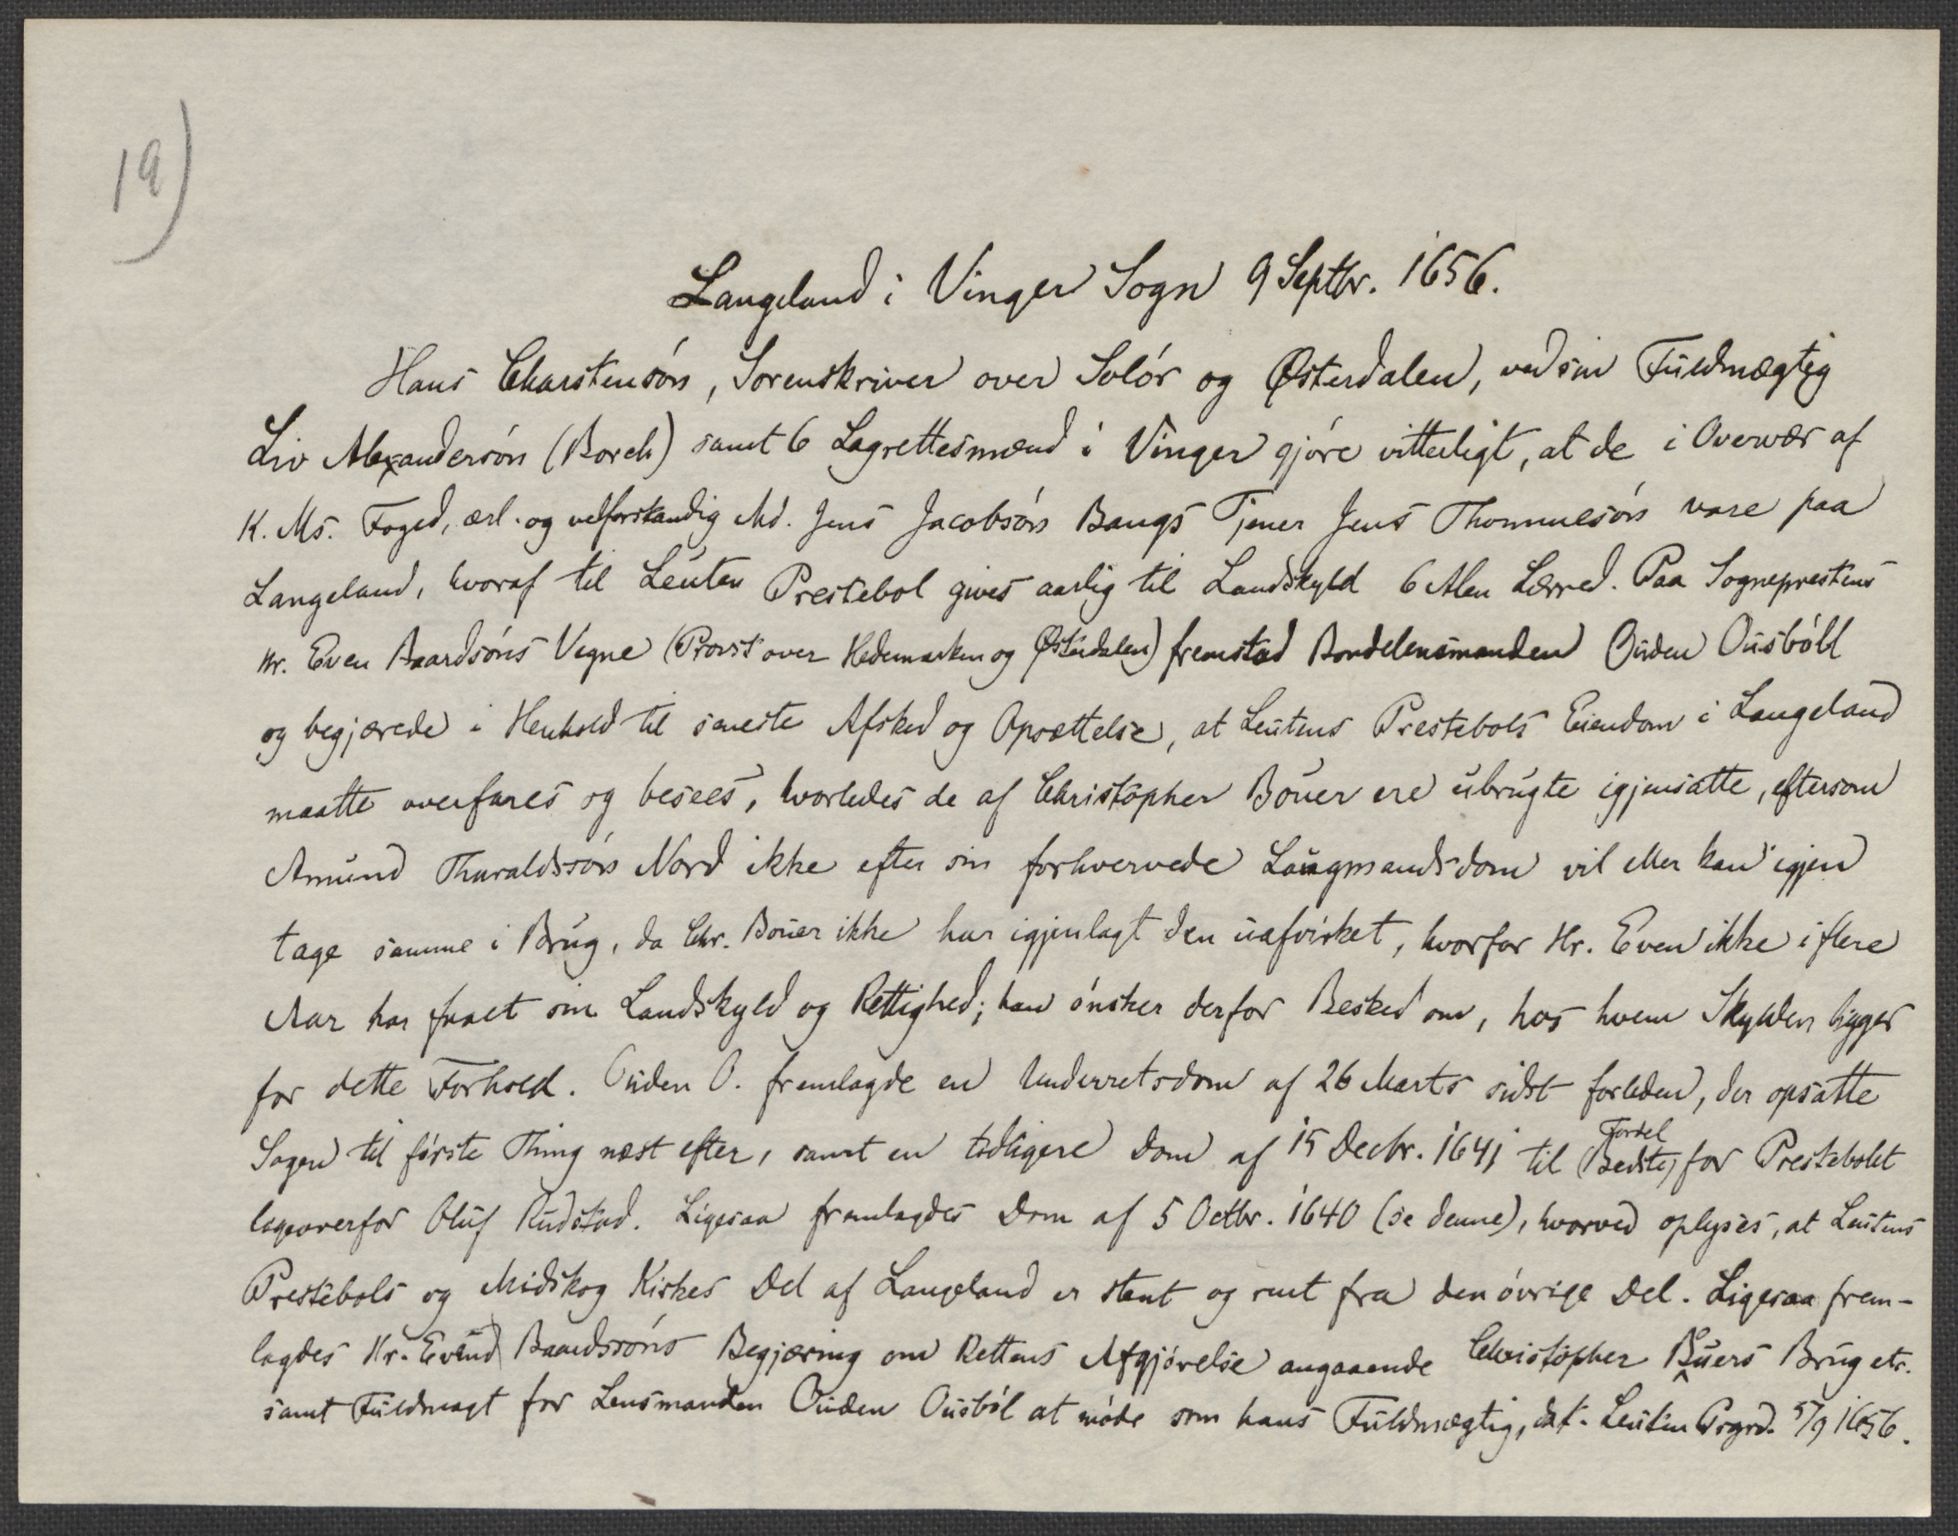 19)
Langeland i Vinger Sogn 9 Septbr. 1656.
Hans Charstensøn, Sorenskriver over Solór og Østerdalen, ved sin Fuldmægtig
Liv Alexandersón (Borch) samt 6 Lagrettesmænd i Vinger gjóre vitterligt, at de i Overvær af
K. Ms. Foged, ærl. og velforstandig Md. Jens Jacobsóns Bangs Tjener Jens Thommesón vare paa
Langeland, hvoraf til Leuten Prestebol gives aarlig til Landskyld 6 Alen Lærred. Paa Sogneprestens
Hr. Even Baardsóns Vegne (Provst over Hedemarken og Østerdalen) fremstod Bondelensmanden Ouden Ousbóll
og begjærede i Henhold til seneste Afsked og Opsættelse, at Leutens Prestebols Eiendom i Langeland
maatte overfares og besees, hvorledes de af Christopher Bouer ere ubrugte igjensatte, eftersom
Amund Tharaldssón Nord ikke efter sin forhvervede Laugmandsdom vil eller kan igjen
tage samme i Brug, da Chr. Bouer ikke har igjenlagt den uafvirket, hvorfor Hr. Even ikke i flere
Aar har faaet sin Landskyld og Rettighed; han ónsker derfor Besked om, hos hvem Skylden ligger
for dette Forhold. Ouden O. fremlagde en Underretsdom af 26 Marts sidst forleden, der opsatte
Sagen til fórste Thing næst efter, samt en tidligere Dom af 15 Decbr. 1641 til (Bedste) Fordel for Prestebolet
ligeoverfor Oluf Rudstad. Ligesaa fremlagdes Dom af 5 Octbr. 1640 (se denne), hvorved oplyses, at Leutens
Prestebols og Midskog Kirkes Del af Langeland er stent og rent fra den óvrige Del. Ligesaa frem-
lagdes Hr. Evend Baardssóns Begjæring om Rettens Afgjórelse angaaende Christopher Buers Brug etc.
samt Fuldmagt for Lensmanden Ouden Ousból at móde som hans Fuldmægtig, dat. Leuten Prgrd. 5/9 1656.